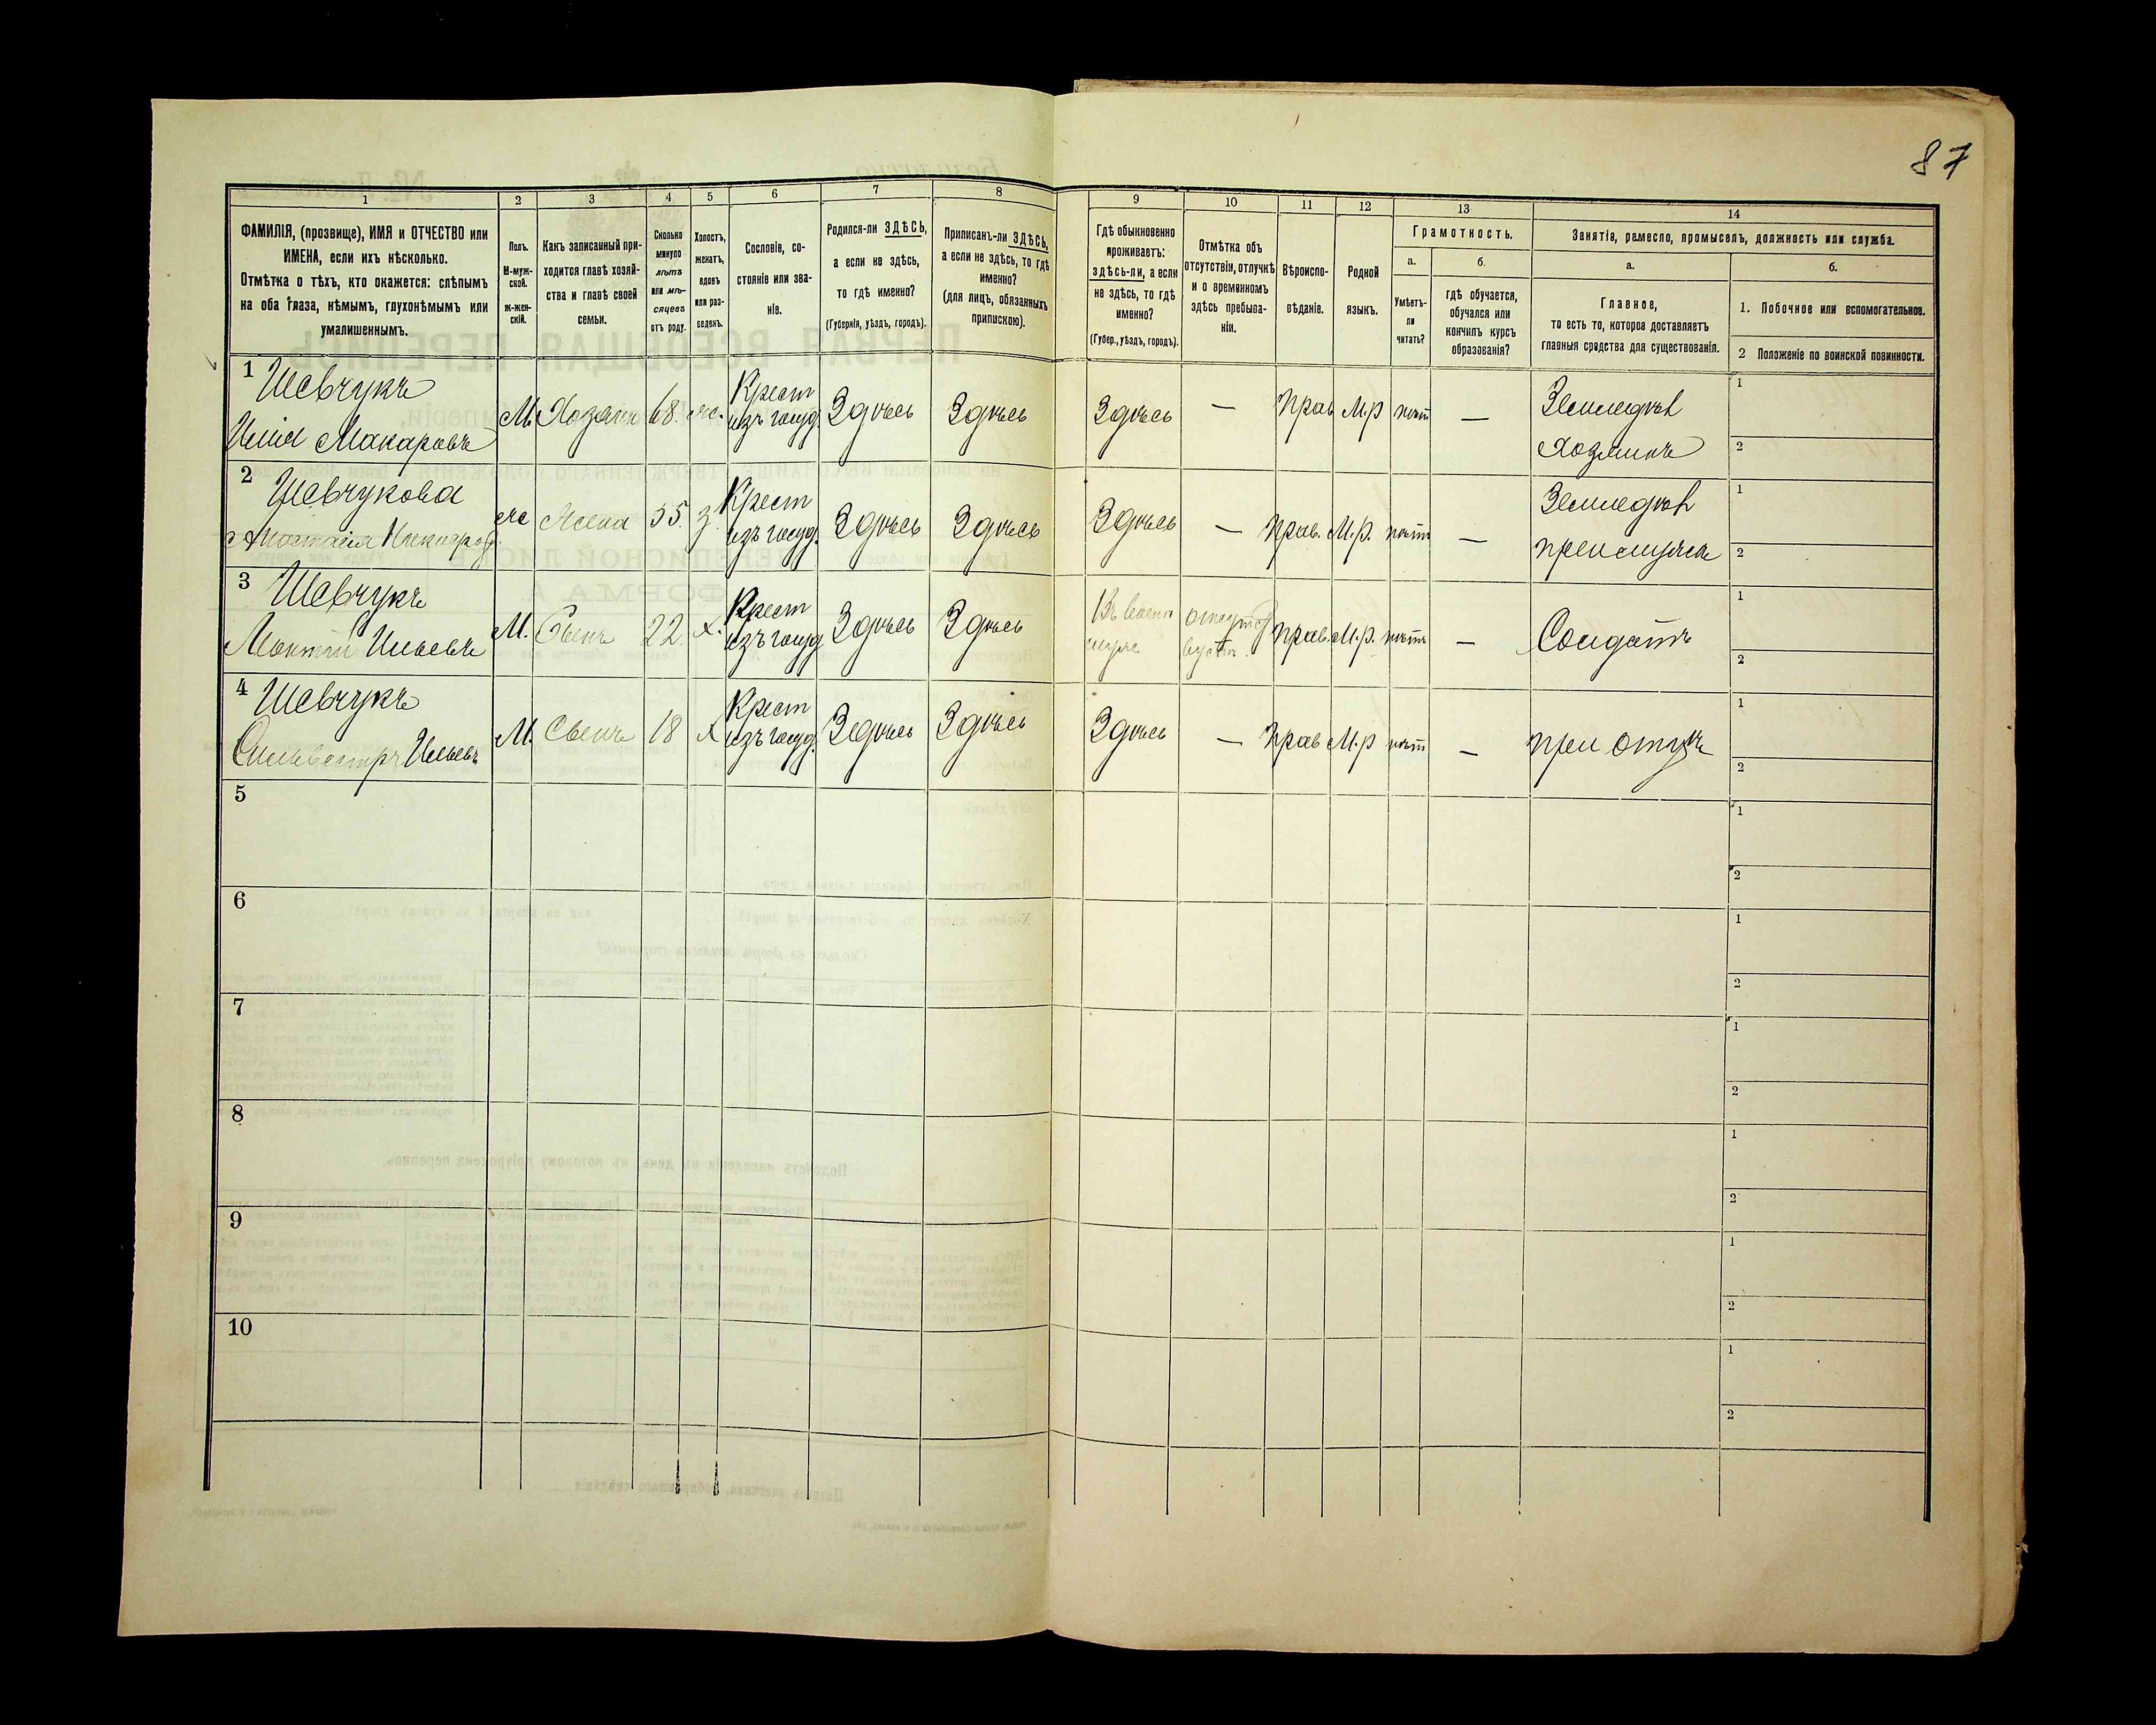 87
1
2
3
4
5
6
7
8
9
10
11
12
13
14
ФАМИЛІЯ, (прозвище), ИМЯ и ОТЧЕСТВО или
ИМЕНА, если ихъ нѣсколько.
Отмѣтка о тѣхъ, кто окажется: слѣпымъ
на оба глаза, нѣмымъ, глухонѣмымъ или
умалишеннымъ.
Полъ.
М-муж-
ской.
Ж-жен-
скій.
Какъ записанный при-
ходится главѣ хозяй-
ства и главѣ своей
семьи.
Сколько
минуло
лѣтъ
или мѣ-
сяцевъ
отъ роду.
Холостъ,
женатъ,
вдовъ
или раз-
веденъ.
Сословіе, со-
стояніе или зва-
ніе.
Родился-ли ЗДѢСЬ,
а если не здѣсь,
то гдѣ именно?
(Губернія, уѣздъ, городъ).
Приписанъ-ли ЗДѢСЬ,
а если не здѣсь, то гдѣ
именно?
(для лицъ, обязанныхъ
припискою).
Гдѣ обыкновенно
проживаетъ:
здѣсь-ли, а если
не здѣсь, то гдѣ
именно?
(Губер., уѣздъ, городъ).
Отмѣтка объ
отсутствіи, отлучкѣ
и о временномъ
здѣсь пребыва-
ніи.
Вѣроиспо-
вѣданіе.
Родной
языкъ.
Грамотность.
а.
Умѣетъ-
ли
читать?
б.
гдѣ обучается,
обучался или
кончилъ курсъ
образованія?
Занятіе, ремесло, промыселъ, должность или служба.
а.
Главное,
то есть то, которое доставляетъ
главныя средства для существованія.
б.
1. Побочное или вспомогательное.
2 Положеніе по воинской повинности.
1 Шевчукъ
Илія Макаровъ
М. Хозяинъ 68. ж. Крест изъ госуд. Здѣсь Здѣсь Здѣсь — Прав М.р нѣт — Земледѣл
Хозяинъ
1
2
2 Шевчукова
Анастасія
же Жена 55. з. Крест изъ госуд. Здѣсь Здѣсь Здѣсь — Прав. М.р. нѣтъ — Земледѣл
1
2
3 Шевчукъ
Ильевъ
М. Сынъ 22. х. Крест изъ госуд Здѣсь Здѣсь Въ Воен служ отсутств Прав. М.р. нѣтъ — Солдатъ
1
2
4 Шевчукъ
Сильвестръ Ильевъ
М. Сынъ 18 х Крест изъ госуд. Здѣсь Здѣсь Здѣсь — Прав М.р нѣт — при отцѣ
1
2
5
1
2
6
1
2
7
1
2
8
1
2
9
1
2
10
1
2